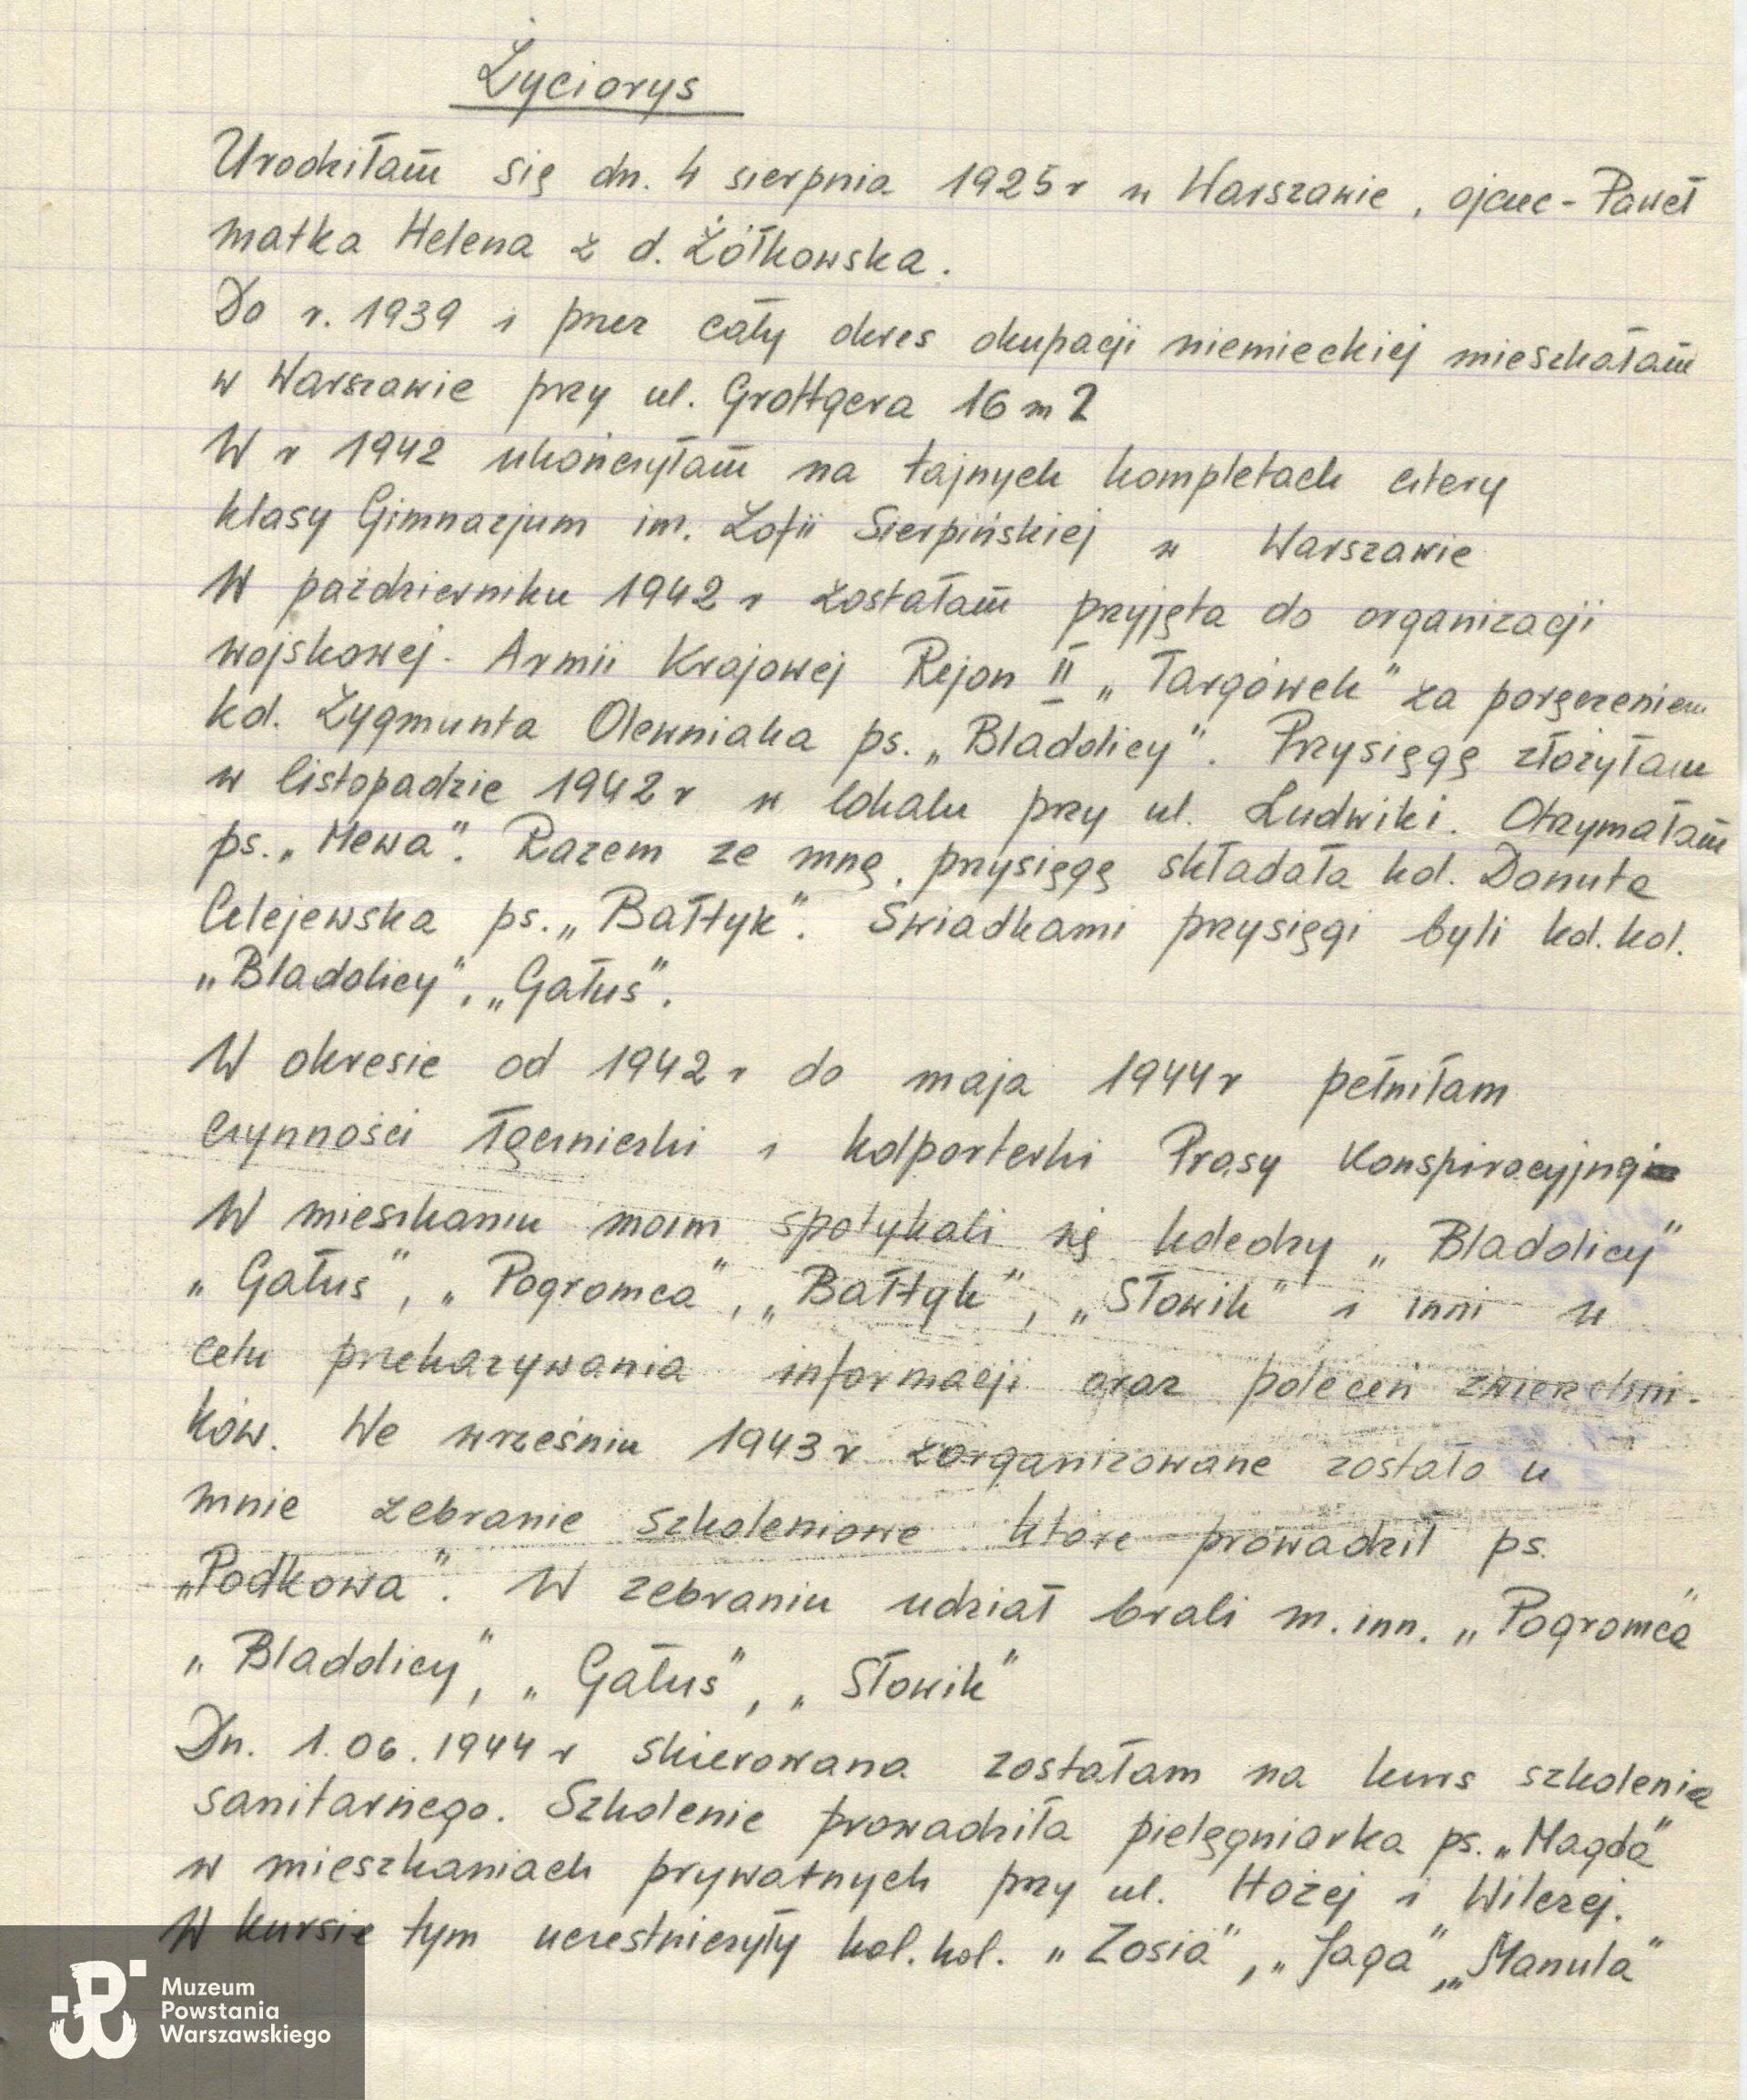 Życiorys
Urodziłam się dn. 4 sierpnia 1925 r w Warszawie, ojciec - Paweł
matka Helena z d. Żółkowska.
Do r. 1939 i przez cały okres okupacji niemieckiej mieszkałam
w Warszawie przy ul. Grottgera 16 m 2
W r 1942 ukończyłam na tajnych kompletach cztery
klasy Gimnazjum im. Zofii Sierpińskiej w Warszawie
W październiku 1942 r zostałam przyjęta do organizacji
wojskowej - Armii Krajowej Rejon II „Targówek" za poręczeniem
kol. Zygmunta Olewniaka ps. „Bladolicy". Przysięgę złożyłam
w listopadzie 1942 r w lokalu przy ul. Ludwiki. Otrzymałam
ps. „Mewa". Razem ze mną, przysięgę składała kol. Danuta
Celejewska ps. „Bałtyk". Świadkami przysięgi byli kol. kol.
„Bladolicy", „Gałus".
W okresie od 1942 r do maja 1944 r pełniłam
czynności łączniczki i kolporterki Prasy Konspiracyjnej
W mieszkaniu moim spotykali się koledzy „Bladolicy"
„Gałus", „Pogromca", „Bałtyk", „Słowik" i inni w
celu przekazywania informacji oraz poleceń zwierzchni-
ków. We wrześniu 1943 r zorganizowane zostało u
mnie zebranie szkoleniowe które prowadził ps.
„Podkowa". W zebraniu udział brali m. inn. „Pogromca"
„Bladolicy", „Gałus", „Słowik"
Dn. 1.06.1944 r skierowana zostałam na kurs szkolenia
sanitarnego. Szkolenie prowadziła pielęgniarka ps. „Magda"
w mieszkaniach prywatnych przy ul. Hożej i Wilczej.
W kursie tym uczestniczyły kol. kol. „Zosia", „Jaga", „Manula"
Muzeum
Powstania
Warszawskiego